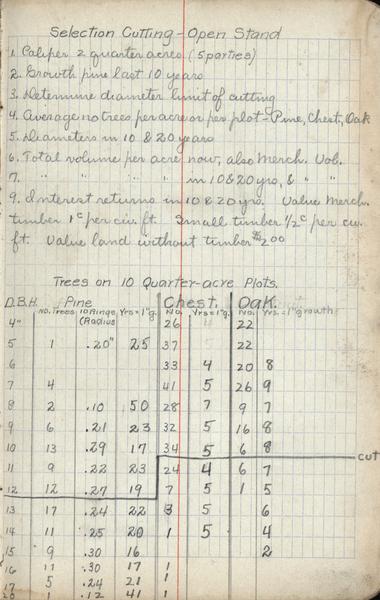 Selection Cutting - Open Stand
1. Caliper 2 quarter acres (5 parties)
2. Growth pine last 10 years
3. Determine diameter limit of cutting
4. Average no trees per acre or per plot - Pine, Chest, Oak
5. Diameters in 10 & 20 years
6. Total volume per acre now, also Merch. Vol.
7. " " " " in 10 & 20 yrs, & " "
9. Interest returns in 10 & 20 yrs. Value Merch.
timber 1¢ per cu. ft. Small timber ½¢ per cu.
ft. Value land without timber $2.00
Trees on 10 Quarter-acre Plots.
D.B.H. Pine Chest. Oak.
No. Trees 10 Rings (Radius Yrs = 1" g. No. Yrs = 1" g. No. Yrs. = 1" growth
4" 26 22
5 1 .20" 25 37 22
6 33 4 20 8
7 4 41 5 26 9
8 2 .10 50 28 7 9 7
9 6 .21 23 32 5 16 8
10 13 .29 17 34 5 6 8
cut
11 9 .22 23 24 4 6 7
12 12 .27 19 7 5 1 5
13 17 .24 22 3 5 6
14 11 .25 20 1 5 4
15 9 .30 16 2
16 11 .30 17 1
17 5 .24 21 1
20 1 .12 41 1